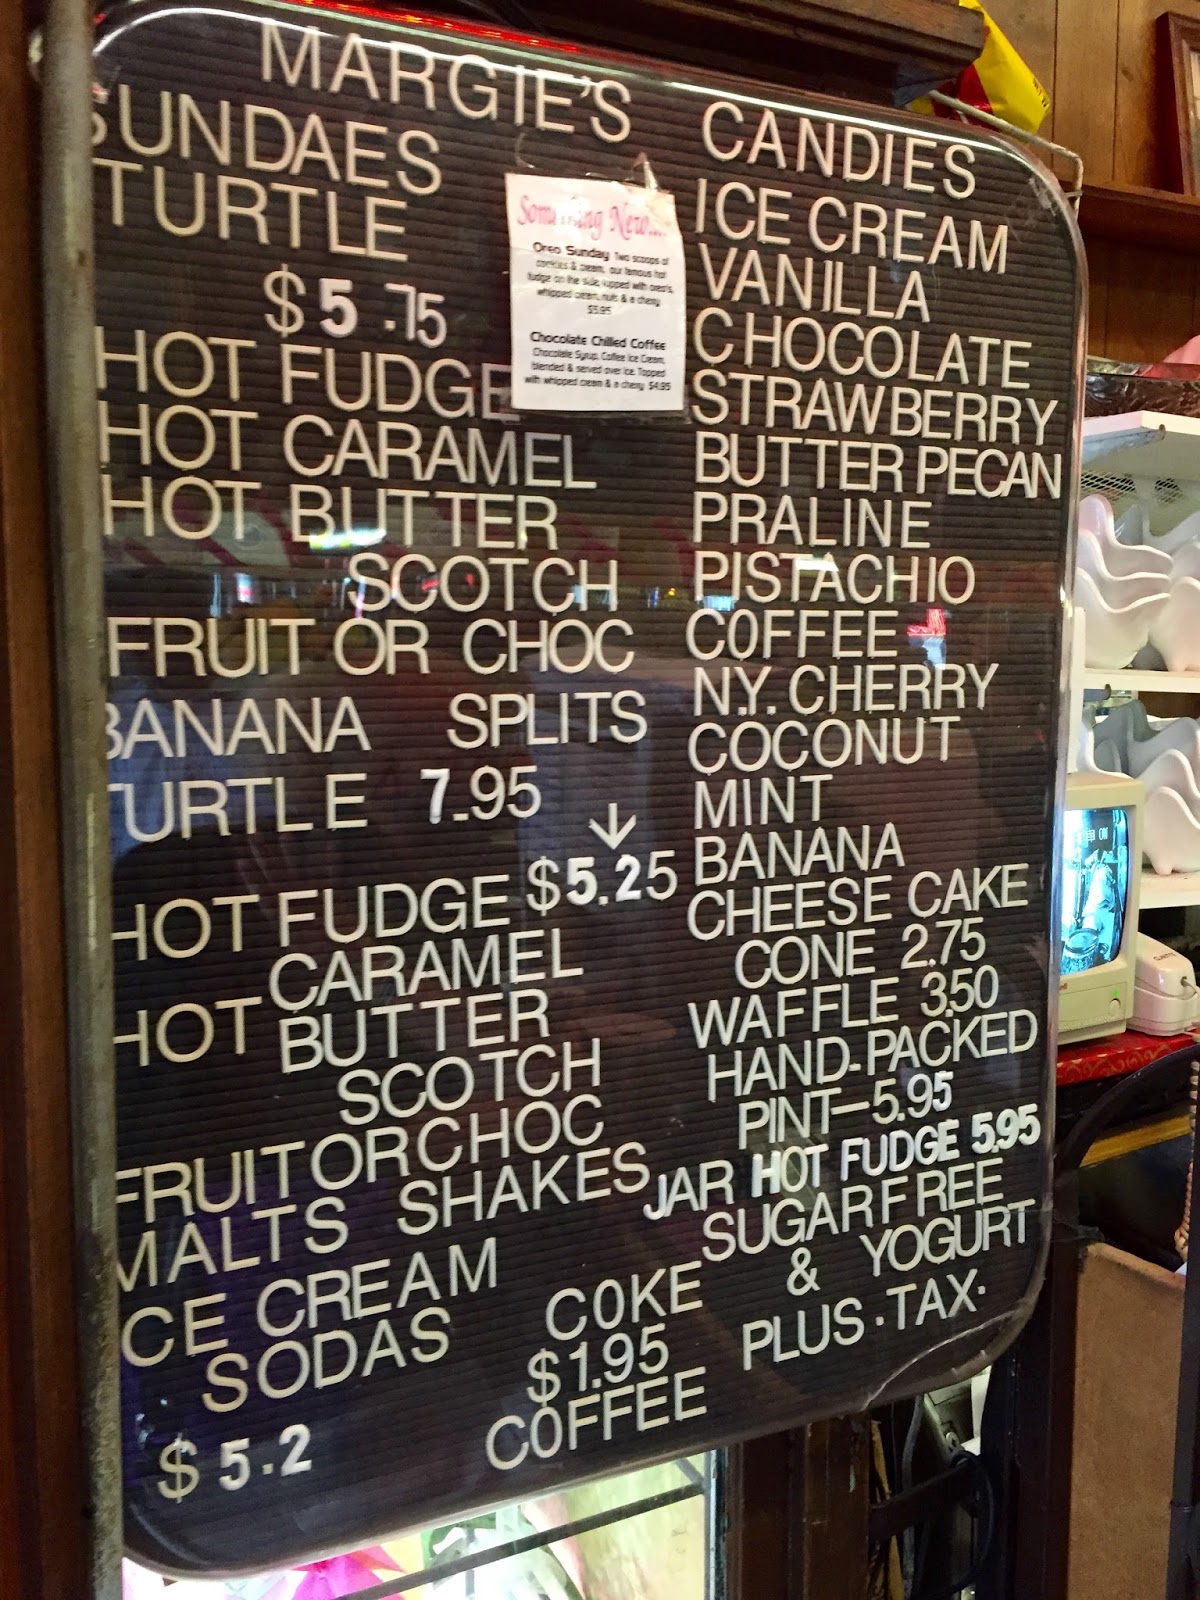 MARGIE'S CANDIES
SUNDAES
TURTLE
$5.75
HOT FUDGE
HOT CARAMEL
HOT BUTTER
SCOTCH
FRUIT OR CHOC
BANANA SPLITS
TURTLE 7.95
HOT FUDGE $5.25
CARAMEL
HOT BUTTER
SCOTCH
FRUIT OR CHOC
MALTS SHAKES
ICE CREAM
SODAS
$5.2
COKE
$1.95
COFFEE
Something New....
Oreo Sunday Two scoops of
cookies & cream, our famous hot
fudge on the side, topped with oreo's,
whipped cream, nuts & a cherry
$5.95
Chocolate Chilled Coffee
Chocolate Syrup, Coffee Ice Cream,
blended & served over ice. Topped
with whipped cream & a cherry $4.95
ICE CREAM
VANILLA
CHOCOLATE
STRAWBERRY
BUTTER PECAN
PRALINE
PISTACHIO
COFFEE
N.Y. CHERRY
COCONUT
MINT
BANANA
CHEESE CAKE
CONE 2.75
WAFFLE 3.50
HAND-PACKED
PINT—5.95
JAR HOT FUDGE 5.95
SUGAR FREE
& YOGURT
PLUS . TAX.